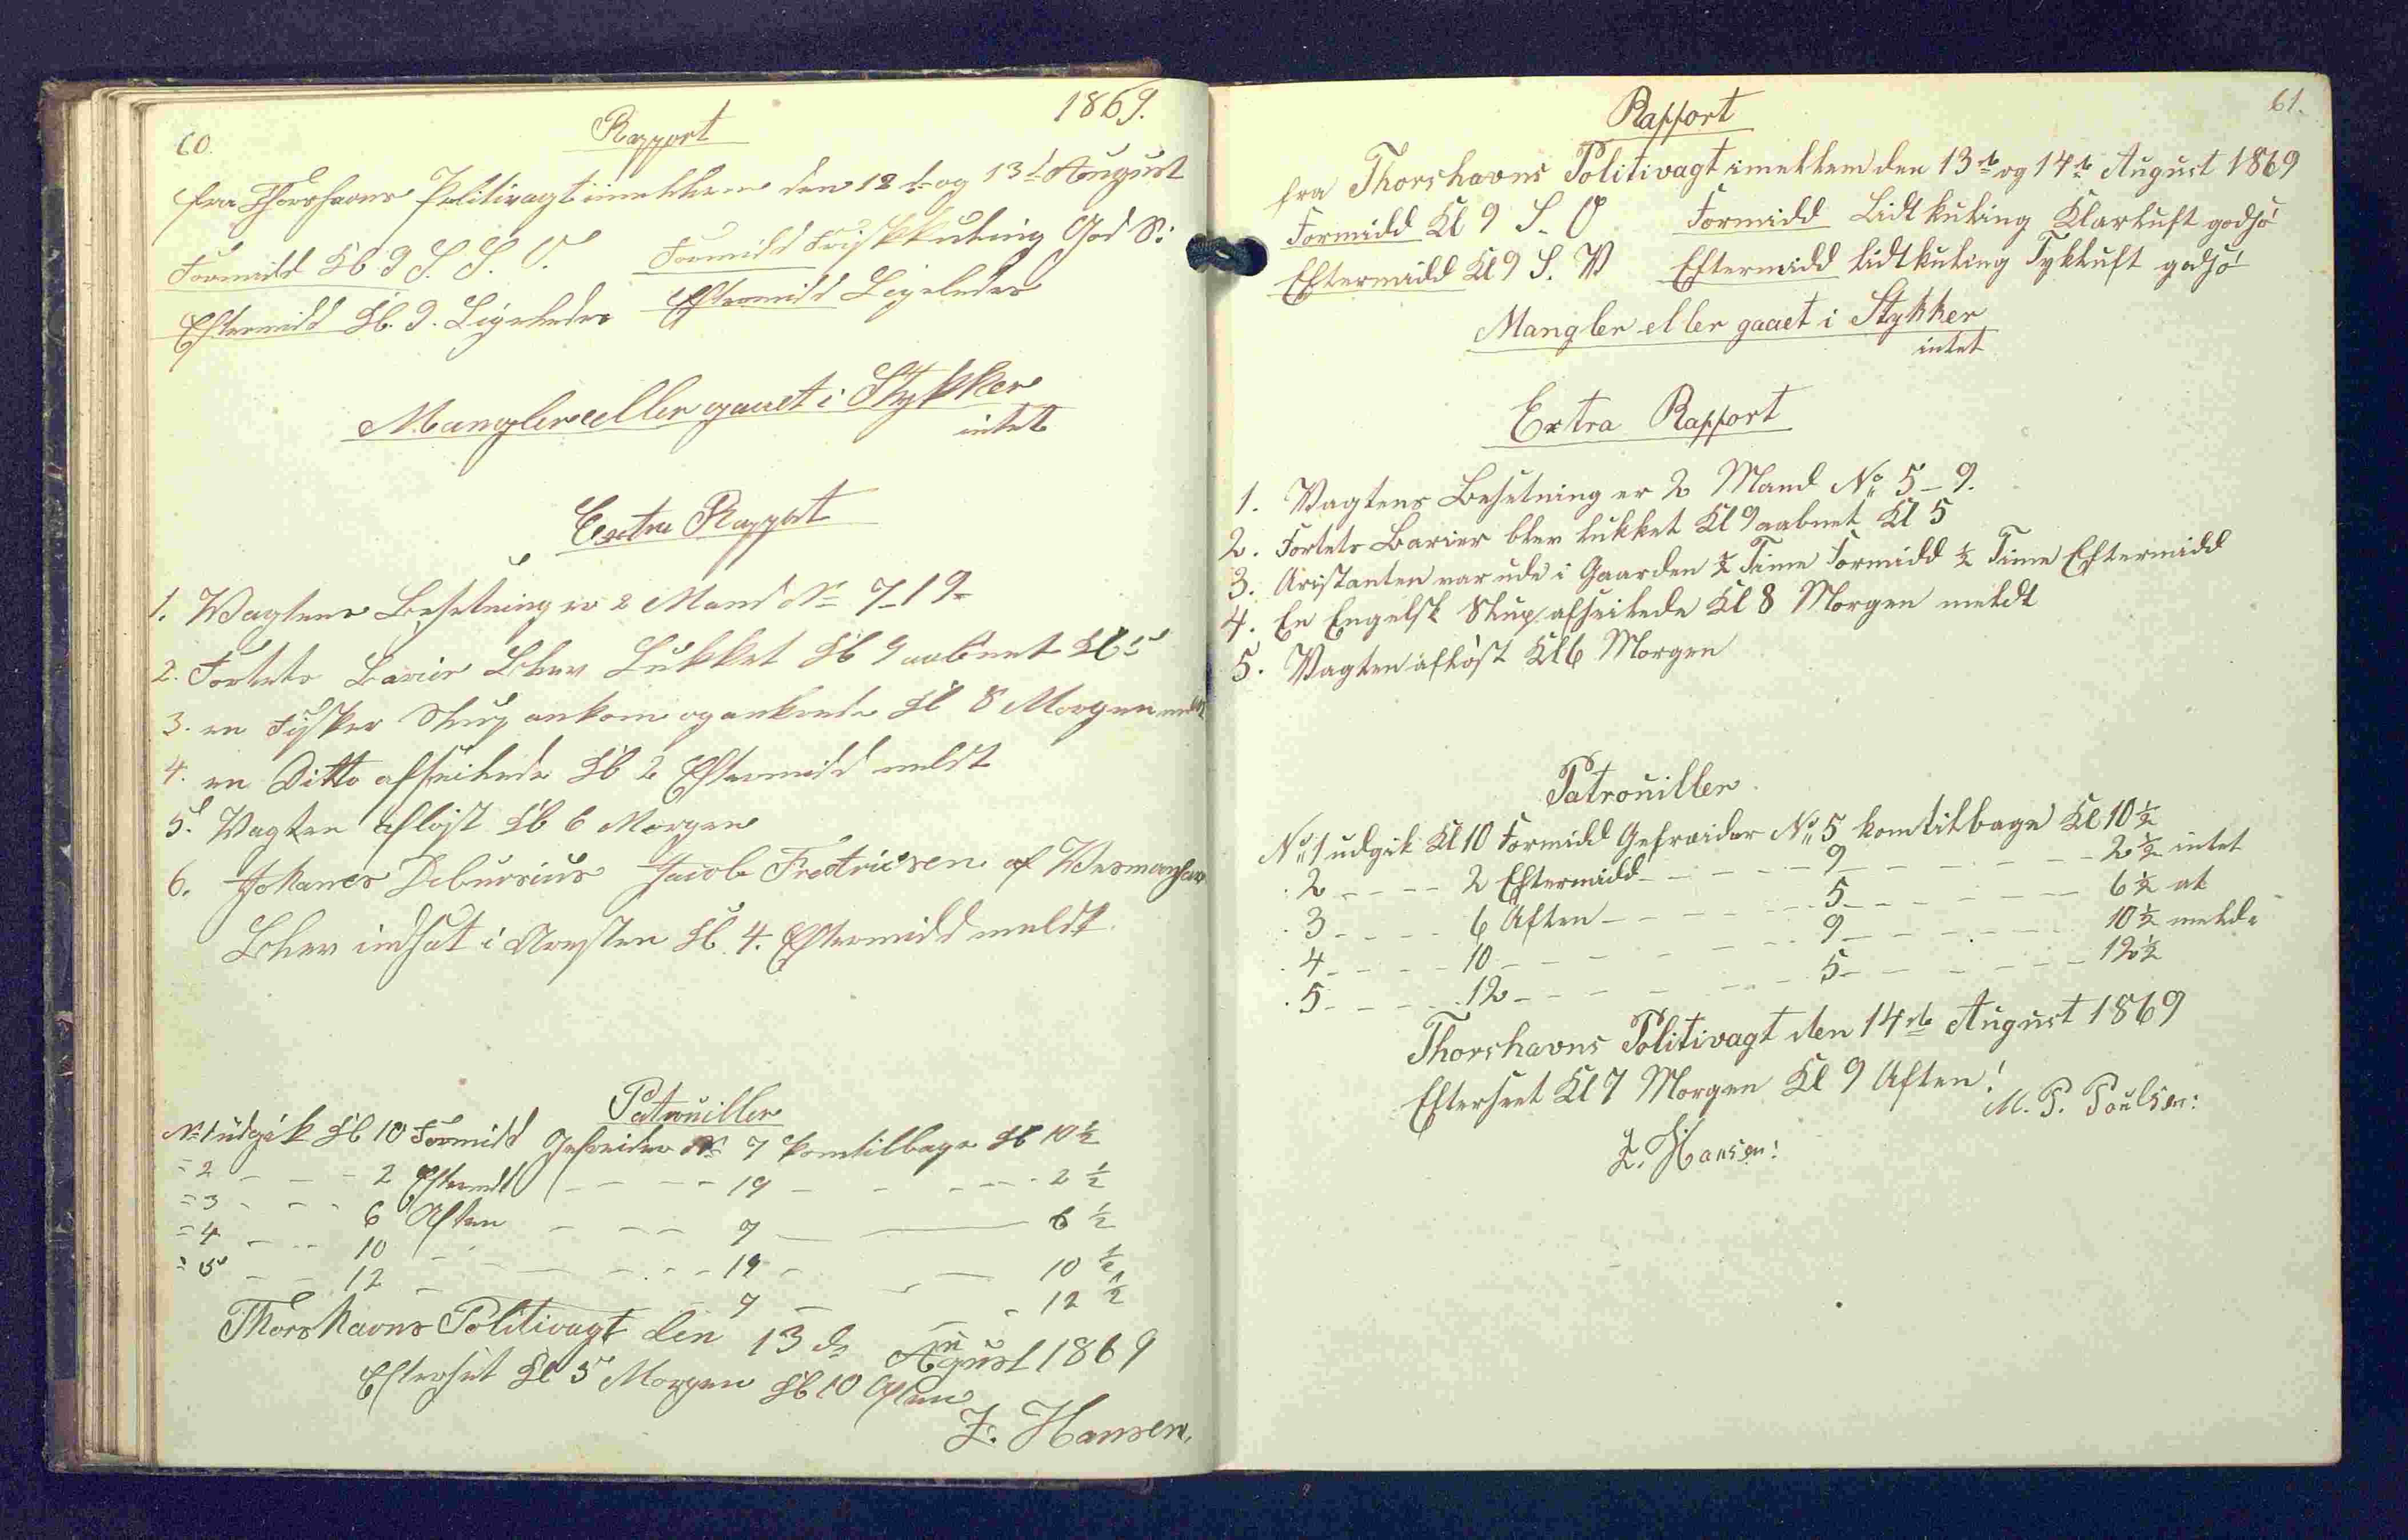 60.
1869.
Rapport
fra Thorshavns Politivagt imellem den 12 d og 13 d August
Formidd Kl 9 S. S. O. Formidd Frisk kuling God S:
Eftermidd Kl. 9. Ligeledes Eftermidd Ligeledes
Mangler eller gaaet i Stykker
intet
Extra Rapport
1. Vagtens Besetning er 2 Mand No 7-19-
2. Fortets Barier blev Lukket Kl 9 aabnet Kl 5
3. en Fisker Slup ankom og ankrede Kl 8 Morgen meldt
4. en Ditto afseilede Kl 2 Eftermidd meldt
5. Vagten afløst Kl 6 Morgen
6. Johanes Debursius Jacob Fredriksen af
Blev indsat i Aresten Kl. 4. Eftermidd meldt
Patrouiller
No 1 udgik Kl 10 Formidd Gefreider No 7 kom tilbage Kl 10 ½
= 2 - - - 2 Eftermdd - - - - 19 - - - - - 2 ½
= 3 - - - 6 Aften - - - 7 - - 6 ½
= 4 - - - 10 - - - - - 19 - - 10 ½
= 5 - - 12 - - 7 - - - 12 ½
Thorshavns Politivagt den 13 de August 1869
Efterset Kl 5 Morgen Kl 10 Aften
Z. Hansen.
61.
Rapport
fra Thorshavns Politivagt imellem den 13de og 14de August 1869
Formidd Kl 9 S. O Formidd Lidt kuling Klarluft godsö
Eftermidd Kl 9 S. V Eftermidd lidt kuling Tykluft godsö
Mangler eller gaaet i Stykker
intet
Extra Rapport
1. Vagtens Besetning er 2 Mand No 5-9.
2. Fortets Barier blev lukket Kl 9 aabnet Kl 5
3. Aristanten var ude i Gaarden ½ Time Formidd ½ Time Eftermidd
4. En Engelsk Slup afseilede Kl 8 Morgen meldt
5. Vagten afløst Kl 6 Morgen
Patrouiller
No 1 udgik Kl 10 Formidd Gefreider No 5 kom tilbage Kl 10 ½
. 2 - - - - 2 Eftermidd - - - - - 9 - - - - - 2 ½ intet
. 3 - - - - 6 Aften - - - - - - 5 - - - - - 6 ½ at
. 4 - - - - 10 - - - - - - 9 - - - - - 10 ½ melde
. 5 - - - - 12 - - - - - - 5 - - - - - 12 ½
Thorshavns Politivagt den 14de August 1869
Efterseet Kl 7 Morgen Kl 9 Aften!
M. P. Poulsen:
Z. Hansen!